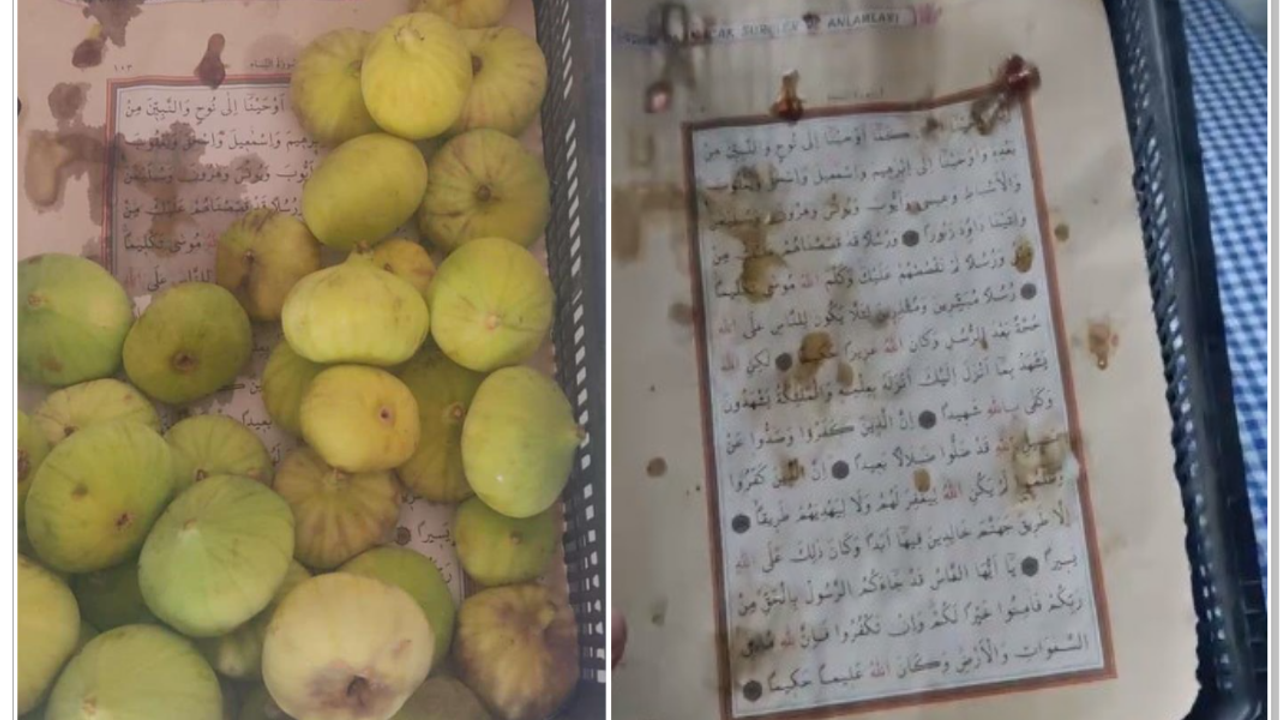 ١٠٣
سورة النساء
اَوْحَيْنَٓا اِلٰى نُوحٍ وَالنَّبِيّٖنَ مِنْ
وَاِسْمٰعٖيلَ وَاِسْحٰقَ وَيَعْقُوبَ
اَيُّوبَ وَيُونُسَ وَهٰرُونَ وَسُلَيْمٰنَ
وَرُسُلًا قَدْ قَصَصْنَاهُمْ عَلَيْكَ مِنْ
مُوسٰى تَكْلٖيمًا
لِلنَّاسِ عَلَى اللّٰهِ
بَعٖيدًا
يَسٖيرًا
SURELER VE ANLAMLARI
كَمَٓا اَوْحَيْنَٓا اِلٰى نُوحٍ وَالنَّبِيّٖنَ مِنْ
بَعْدِهٖ وَاَوْحَيْنَٓا اِلٰٓى اِبْرٰهٖيمَ وَاِسْمٰعٖيلَ وَاِسْحٰقَ وَيَعْقُوبَ
وَالْاَسْبَاطِ وَعٖيسٰى وَاَيُّوبَ وَيُونُسَ وَهٰرُونَ وَسُلَيْمٰنَ
وَاٰتَيْنَا دَاوُ۫دَ زَبُورًا وَرُسُلًا قَدْ قَصَصْنَاهُمْ عَلَيْكَ مِنْ
قَبْلُ وَرُسُلًا لَمْ نَقْصُصْهُمْ عَلَيْكَ وَكَلَّمَ اللّٰهُ مُوسٰى تَكْلٖيمًا
رُسُلًا مُبَشِّرٖينَ وَمُنْذِرٖينَ لِئَلَّا يَكُونَ لِلنَّاسِ عَلَى اللّٰهِ
حُجَّةٌ بَعْدَ الرُّسُلِ وَكَانَ اللّٰهُ عَزٖيزًا حَكٖيمًا لٰكِنِ اللّٰهُ
يَشْهَدُ بِمَٓا اَنْزَلَ اِلَيْكَ اَنْزَلَهُ بِعِلْمِهٖ وَالْمَلٰٓئِكَةُ يَشْهَدُونَ
وَكَفٰى بِاللّٰهِ شَهٖيدًا اِنَّ الَّذٖينَ كَفَرُوا وَصَدُّوا عَنْ
سَبٖيلِ اللّٰهِ قَدْ ضَلُّوا ضَلَالًا بَعٖيدًا اِنَّ الَّذٖينَ كَفَرُوا
وَظَلَمُوا لَمْ يَكُنِ اللّٰهُ لِيَغْفِرَ لَهُمْ وَلَا لِيَهْدِيَهُمْ طَرٖيقًا
اِلَّا طَرٖيقَ جَهَنَّمَ خَالِدٖينَ فٖيهَٓا اَبَدًا وَكَانَ ذٰلِكَ عَلَى اللّٰهِ
يَسٖيرًا يَٓا اَيُّهَا النَّاسُ قَدْ جَٓاءَكُمُ الرَّسُولُ بِالْحَقِّ مِنْ
رَبِّكُمْ فَاٰمِنُوا خَيْرًا لَكُمْ وَاِنْ تَكْفُرُوا فَاِنَّ لِلّٰهِ مَا فِي
السَّمٰوَاتِ وَالْاَرْضِ وَكَانَ اللّٰهُ عَلٖيمًا حَكٖيمًا